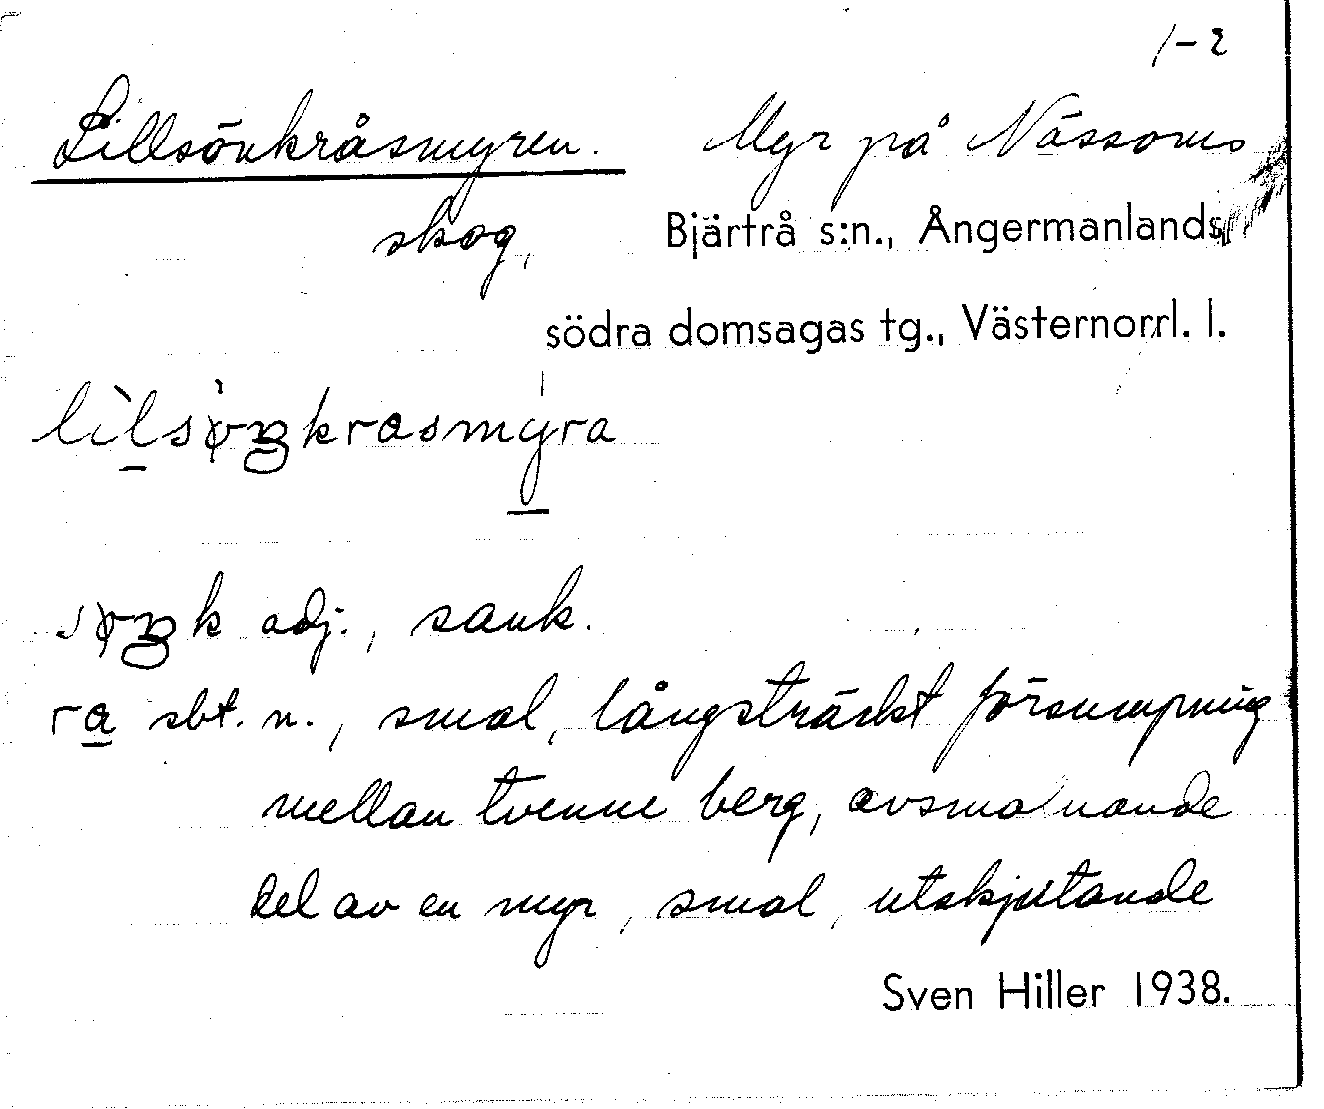 1-2
Lillsönkråsmyren. Myr på Nässoms
skog, Bjärtrå s:n., Ångermanlands
södra domsagas tg., Västernorrl. l.
adj., sank.
sbt. n., smal, långsträckt försumpning
mellan tvenne berg, avsmalnande
del av en myr, smal, utskjutande
Sven Hiller 1938.